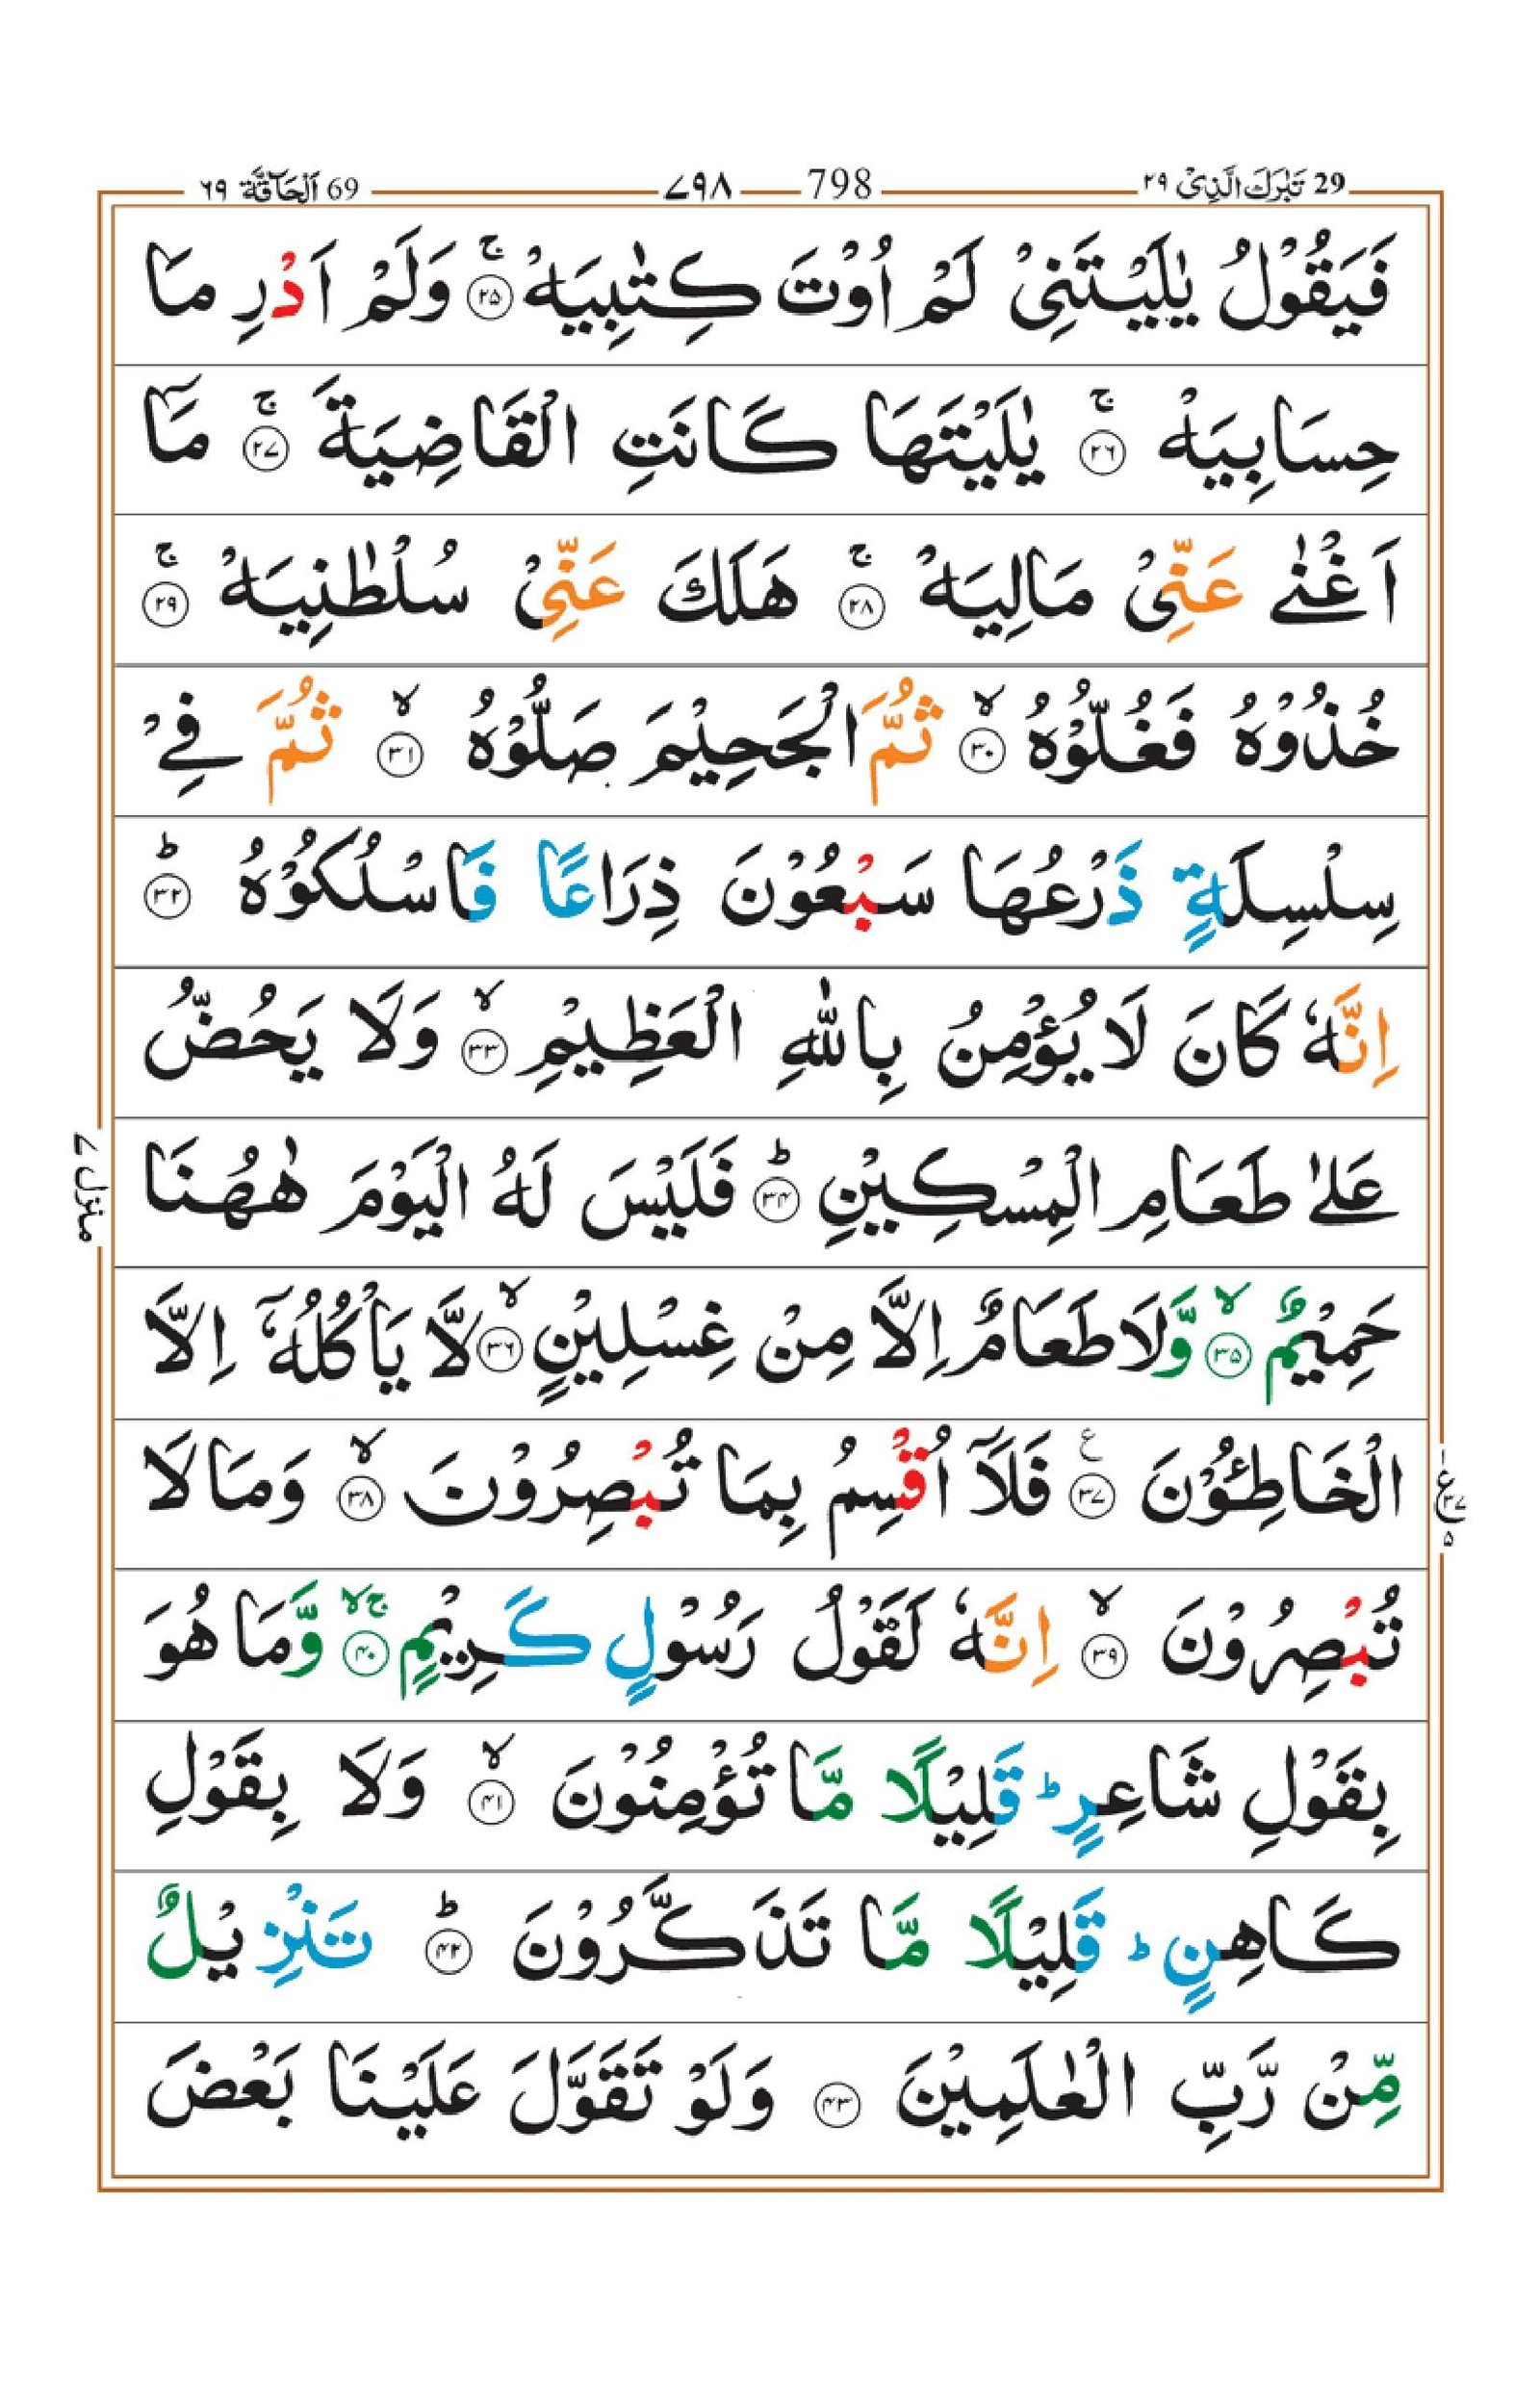 29 تَبٰرَكَ الَّذِىْ ٢٩
798 ٧٩٨
69 اَلْحَآقَّة ٦٩
فَيَقُوْلُ يٰلَيْتَنِىْ لَمْ اُوْتَ كِتٰبِيَهْ ۚ ﴿۲۵﴾ وَلَمْ اَدْرِ مَا
حِسَابِيَهْ ۚ ﴿۲۶﴾ يٰلَيْتَهَا كَانَتِ الْقَاضِيَةَ ۚ ﴿۲۷﴾ مَاۤ
اَغْنٰى عَنِّىْ مَالِيَهْ ۚ ﴿۲۸﴾ هَلَكَ عَنِّىْ سُلْطٰنِيَهْ ۚ ﴿۲۹﴾
خُذُوْهُ فَغُلُّوْهُ ۙ ﴿۳۰﴾ ثُمَّ الْجَحِيْمَ صَلُّوْهُ ۙ ﴿۳۱﴾ ثُمَّ فِىْ
سِلْسِلَةٍ ذَرْعُهَا سَبْعُوْنَ ذِرَاعًا فَاسْلُكُوْهُ ؕ ﴿۳۲﴾
اِنَّهٗ كَانَ لَا يُؤْمِنُ بِاللّٰهِ الْعَظِيْمِ ۙ ﴿۳۳﴾ وَلَا يَحُضُّ
عَلٰى طَعَامِ الْمِسْكِيْنِ ؕ ﴿۳۴﴾ فَلَيْسَ لَهُ الْيَوْمَ هٰهُنَا
حَمِيْمٌ ۙ ﴿۳۵﴾ وَّلَا طَعَامٌ اِلَّا مِنْ غِسْلِيْنٍ ۙ ﴿۳۶﴾ لَّا يَاْكُلُهٗۤ اِلَّا
الْخَاطِئُوْنَ ﴿۳۷﴾ ع فَلَاۤ اُقْسِمُ بِمَا تُبْصِرُوْنَ ۙ ﴿۳۸﴾ وَمَا لَا
تُبْصِرُوْنَ ۙ ﴿۳۹﴾ اِنَّهٗ لَقَوْلُ رَسُوْلٍ كَرِيْمٍ ۚۙ ﴿۴۰﴾ وَّمَا هُوَ
بِقَوْلِ شَاعِرٍ ؕ قَلِيْلًا مَّا تُؤْمِنُوْنَ ۙ ﴿۴۱﴾ وَلَا بِقَوْلِ
كَاهِنٍ ؕ قَلِيْلًا مَّا تَذَكَّرُوْنَ ؕ ﴿۴۲﴾ تَنْزِيْلٌ
مِّنْ رَّبِّ الْعٰلَمِيْنَ ﴿۴۳﴾ وَلَوْ تَقَوَّلَ عَلَيْنَا بَعْضَ
منزل ٧
ع ۳۷ ۵